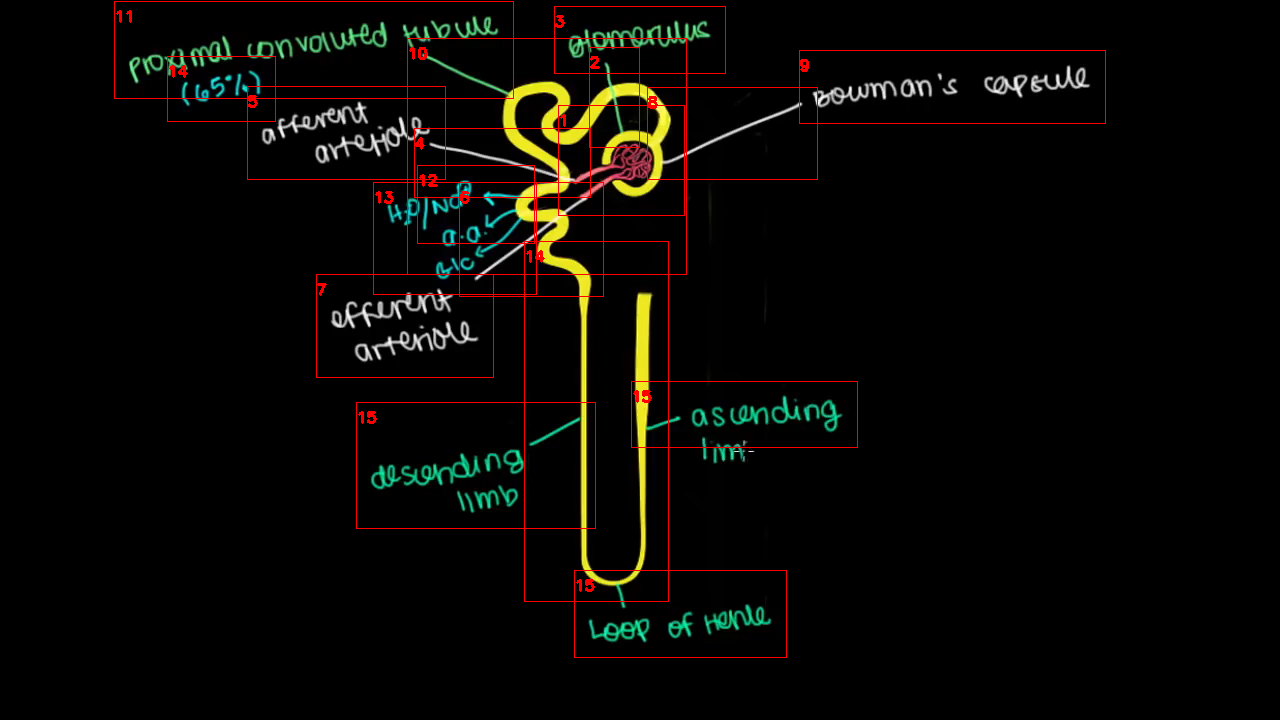 11
proximal convoluted tubule
14
(65%)
3
glomerulus
10
2
9
Bowman's capsule
5
afferent
arteriole
8
1
4
12
13
6
H₂O/Na⊕
a.a.
Glc
14
7
efferent
arteriole
15
ascending
lim
15
descending
limb
15
Loop of Henle